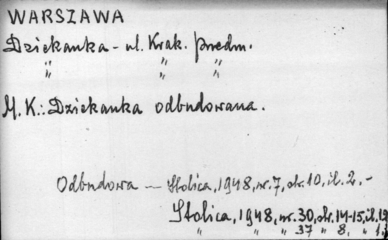 WARSZAWA
Dziekanka - ul. Krak. przedm.
" " "
" " "
M. K.: Dziekanka odbudowana.
Odbudowa — Stolica, 1948, nr. 7, str. 10, il. 2. -
Stolica, 1948, nr. 30, str. 14-15, il. 19
" " " 37 " 8, " 1,